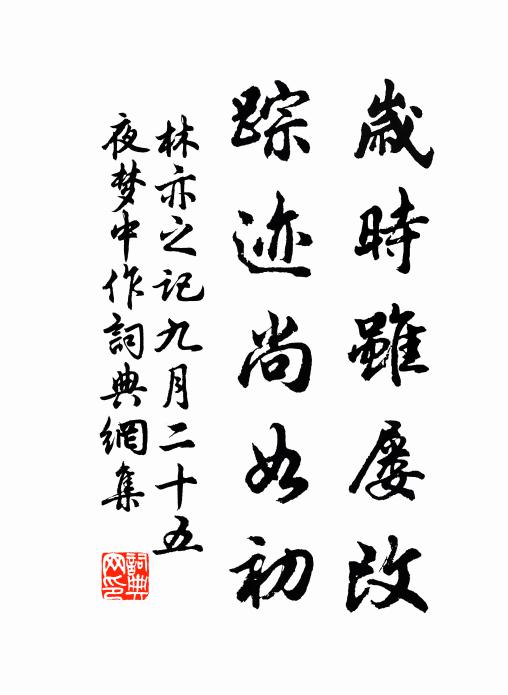 歲時雖屢改
踪迹尚如初
林亦之记九月二十五
夜梦中作詞典網集
詞典
网印